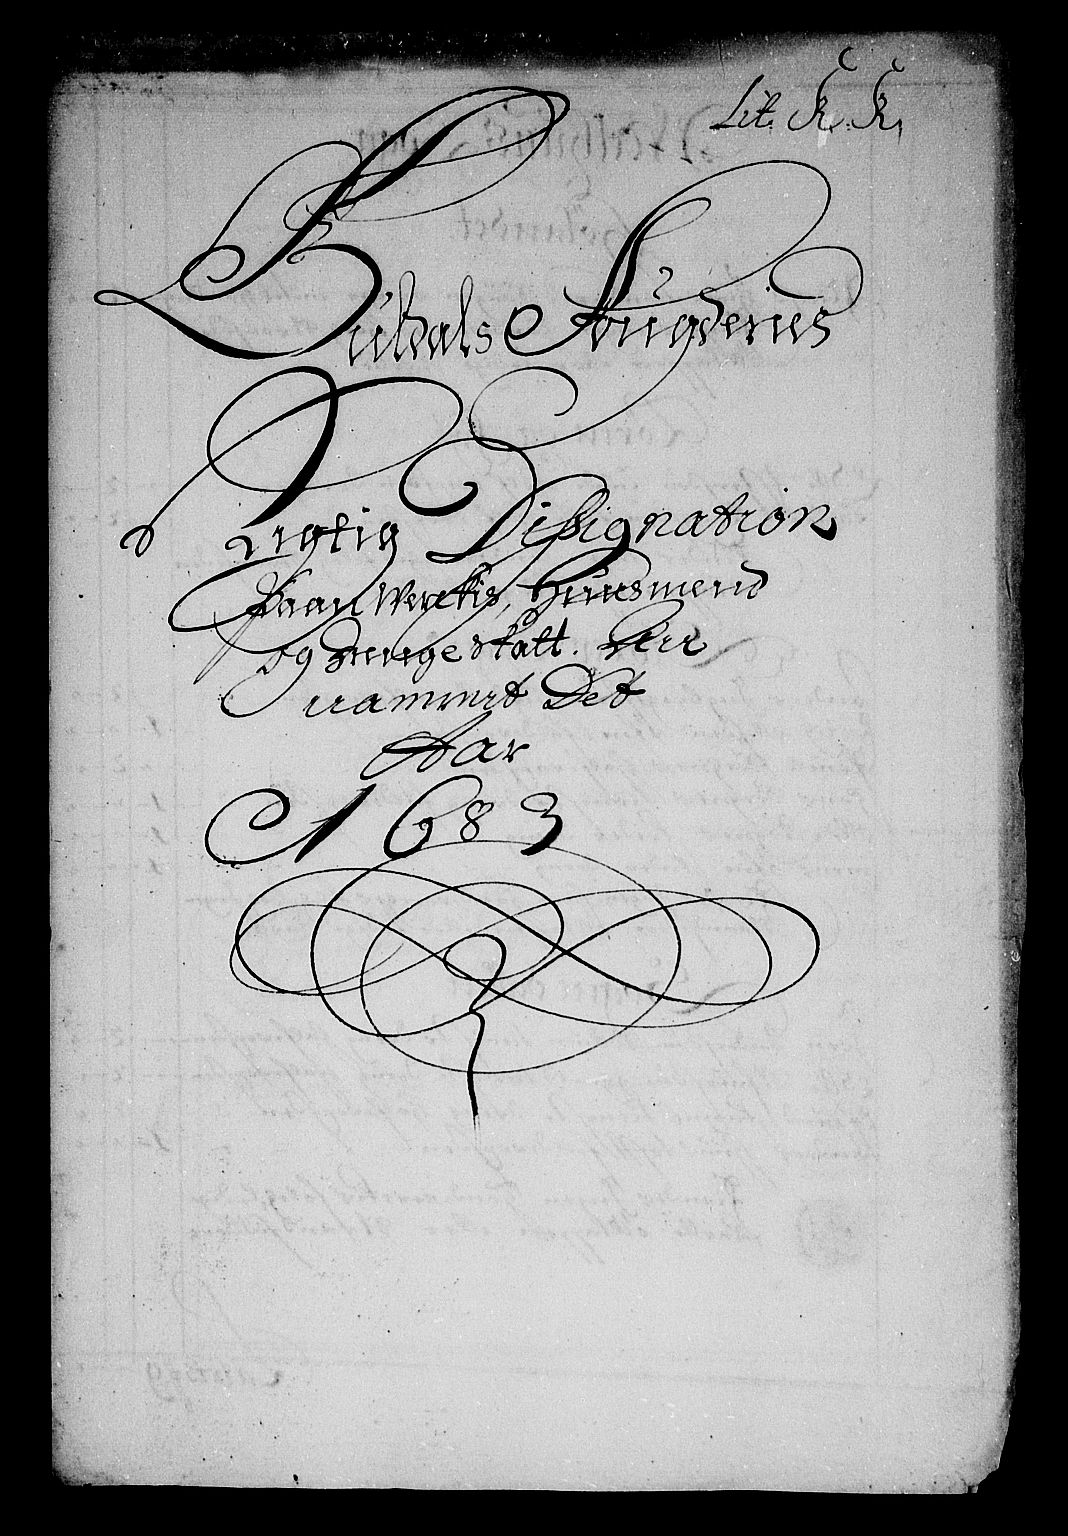 Lit. K. K.
Buldals Fougderies
Rigtig Dissignation
Paan Werckis, Huusmend
og Drenge Skatt. Are
nammet Det
Aar
1683